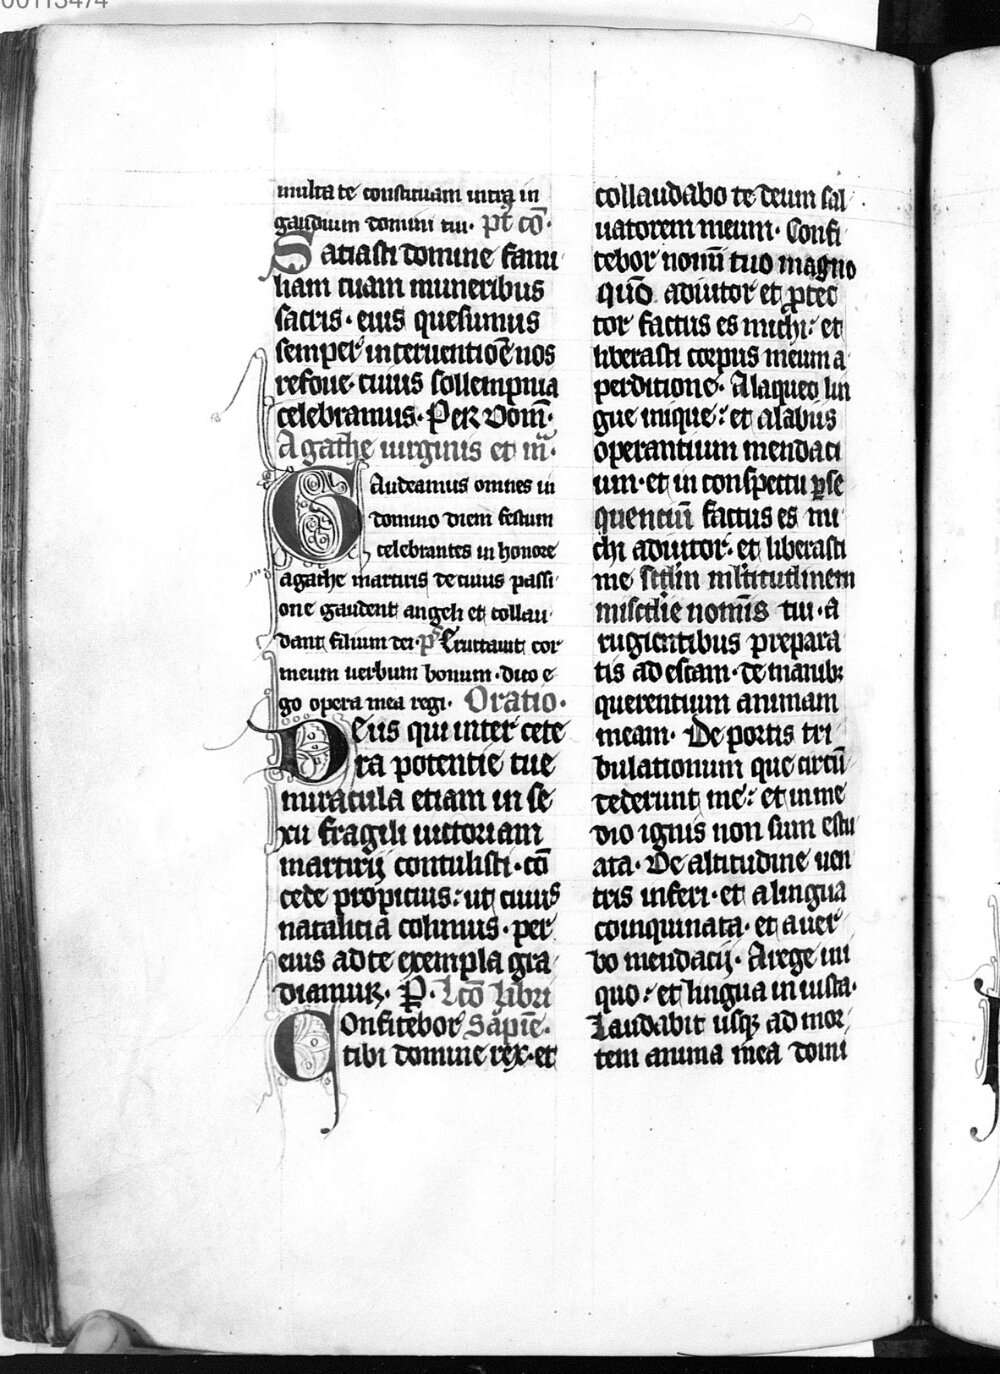 00113474
multa te constituam intra in
gaudium domini tui. pt co.
Satiasti domine fami
liam tuam muneribus
sacris. eius quesumus
semper interuentioe nos
refoue. cuius sollempnia
celebramus. Per dom.
Agathe uirginis et m.
Gaudeamus omnes in
domino diem festum
celebrantes in honore
agathe martiris de cuius passi
one gaudent angeli et collau
dant filium dei. ps Eructauit cor
meum uerbum bonum. dico e
go opera mea regi. Oratio.
Deus qui inter cete
ra potentie tue
miracula etiam in se
xu fragili uictoriam
martirij contulisti. co
cede propicius: ut cuius
natalicia colimus. per
eius ad te exempla gra
diamur. P. Lco libri
Confitebor Sapie.
tibi domine rex. et
collaudabo te deum sal
uatorem meum. Confi
tebor nomi tuo magno
quo adiutor et ptec
tor factus es michi: et
liberasti corpus meum a
perditione. A laqueo lin
gue inique: et a labiis
operantium mendaci
um. et in conspectu pse
quentiu factus es mi
chi adiutor. et liberasti
me scdin mltitudinem
miscdie nomis tui. a
rugientibus prepara
tis ad escam. de manib;
querentium animam
meam. De portis tri
bulationum que circu
dederunt me: et in me
dio ignis non sum estu
ata. De altitudine uen
tris inferi. et a lingua
coinquinata. et a uer
bo mendacij. A rege ini
quo: et lingua iniusta.
Laudabit usq; ad mor
tem anima mea domi